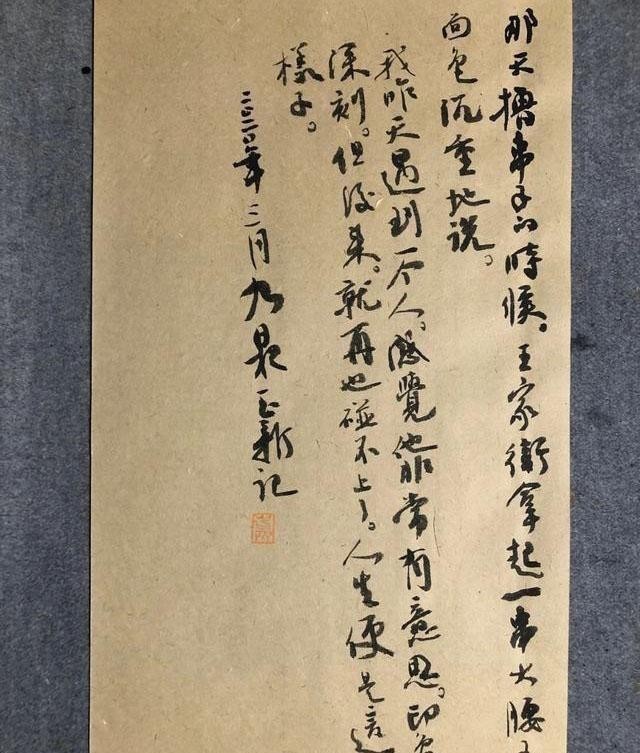 那天撸串子的時候。王家衛拿起一串大腰子
面色沉重地说。
我昨天遇到一个人。感覺他非常有意思。印象
深刻。但後来。就再也碰不上了。人生便是這
樣子。
二〇二〇年三月 泉 新记